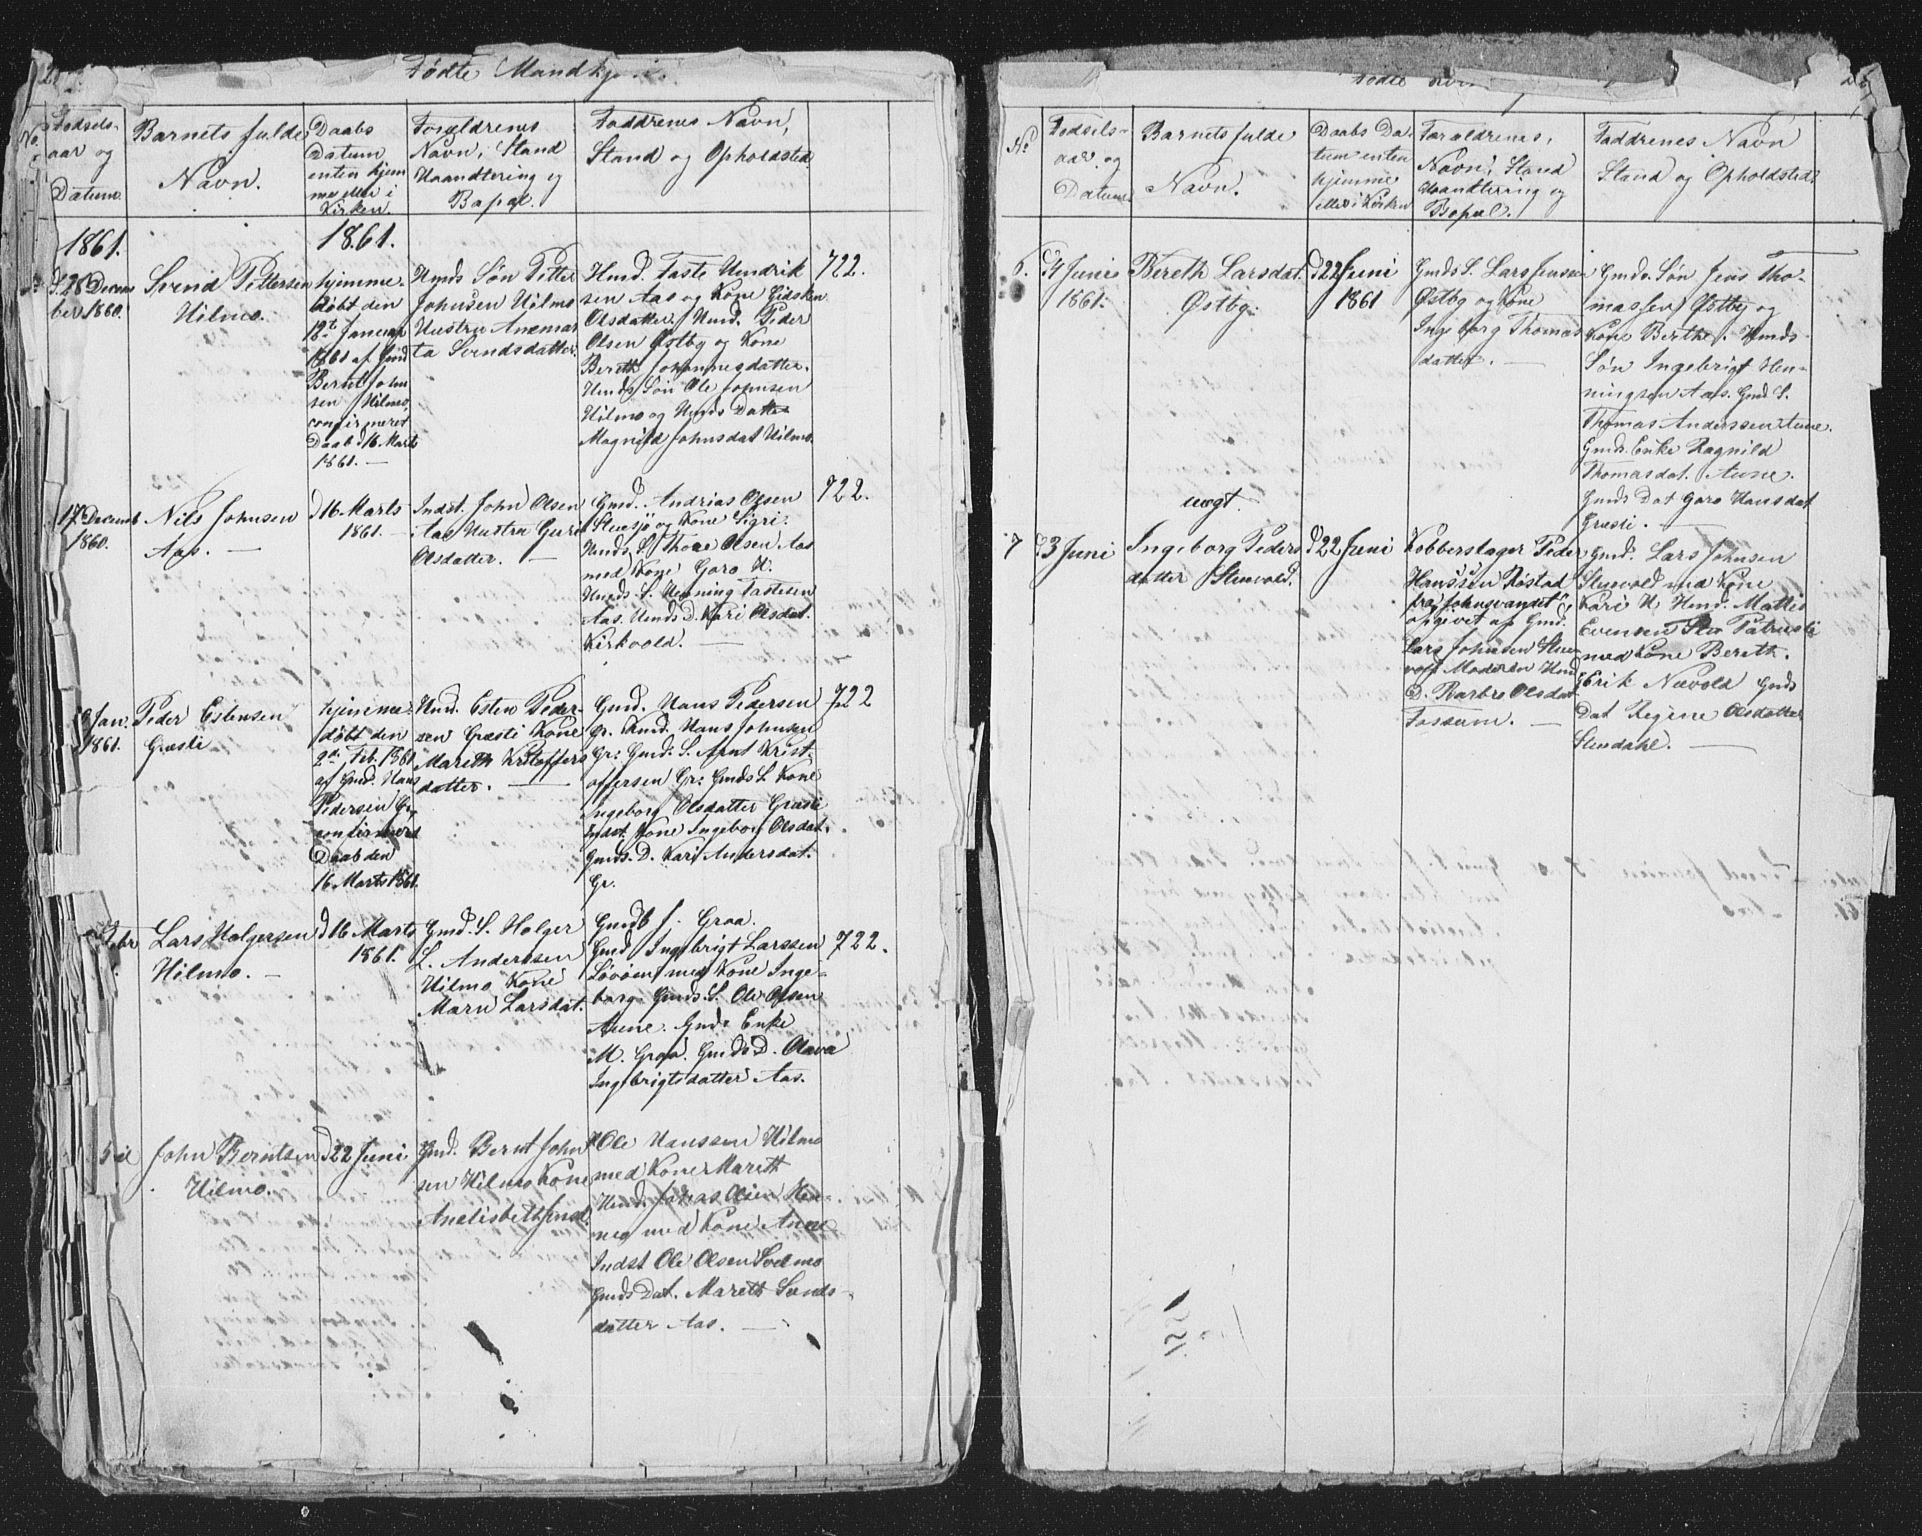 Fødte Mandkj
Fødselsaar og Datum
Barnets fulde Navn.
Daabs Datum enten hjemme eller i Kirken.
Forældrenes Navn, Stand Haandtering og Bopæl.
Faddrenes Navn, Stand og Opholdsted
1861.
1861.
d. 28 Decem
ber 1860.
Svend Pettersen
Hilmo.
hjemme
døbt den
12te Januar
1861 af Gmd
Bernt John
sen Hilmo,
confirmeret
Daab d 16 Marts
1861. —
Hmds Søn Petter
Johnsen Hilmo
Hustru Anemar
ta Svendsdatter.
Hmd. Taste Hendrik
sen Aas og Kone Gidsken
Olsdatter, Hmd. Peder
Olsen Østby og Kone
Bereth Johannesdatter.
Hmds Søn Ole Johnsen
Hilmo og Hmds Datter
Magnild Johnsdat Hilmo.
722.
17 Decemb
1860.
Nils Johnsen
Aas. —
d 16 Marts
1861. —
Indst. John Olsen
Aas Hustru Guri
Olsdatter. —
Gmd. Andrias Olsen
Stuesjø og Kone Sigri.
Hmds. S. Thore Olsen Aas
med Kone Goro H.
Hmds. S. Henning Tastesen
Aas. Hmds D. Kari Olsdat.
Kirkvold. —
722.
Jan.
1861.
Peder Estensen
Græsli
hjemme
døbt den
2den Feb. 1861
af Gmd. Hans
Pedersen Gr,
confirmeret
Daab den
16 Marts 1861.
Hmd. Esten Peder-
sen Græsli Kone
Mareth Kristoffers
datter. —
Gmd. Hans Pedersen
Gr. Hmd. Hans Johnsen
Gr: Gmds. S. Arnt Krist-
offersen Gr: Gmds S. Kone
Ingeborg Olsdatter Græsli
Indst. Kone Ingebor Olsdat.
Gmds. D. Kari Andersdat.
Gr.
722
Febr
Lars Holgersen
Hilmo. —
d 16 Marts
1861.
Gmd. S. Holger
L. Anderssen
Hilmo Kone
Marn Larsdat.
Gmdb J. Graa.
Gmd. Ingebrigt Larssen
Løvøen med Kone Inge-
borg. Gmds. S. Ole Olsen
Aune. Gmds Enke
M. Graa. Gmds D. Olava
Ingebrigtsdatter Aas.
722.
John Berntsen
Hilmo.
d 22 Juni
Gmd. Bernt John
sen Hilmo Kone
Anelisbeth Jensd.
Ole Hanssen Hilmo
med Kone Mareth
Hmd. Jonas Olsen Hen-
neg med Kone Anne
Indst Ole Olsen Svelmo
Gmds Dat. Mareth Svends-
datter Aas. —
Fødte
№
Fødsels-aar og Datum
Barnets fulde Navn.
Daabs Datum enten hjemme eller i Kirken
Forældrenes, Navn, Stand Haandtering og Bopæl.
Faddrenes Navn Stand og Opholdsted
6.
d 4 Juni
1861.
Bereth Larsdat.
Østby.
d 22 Juni
1861
Gmds S. Lars Jensen
Østby og Kone
Ingeborg Thomas
datter. —
Gmds. Søn Jens Tho-
massen Østby og
Kone Berthe. Hmds-
Søn Ingebrigt Hen-
ningsen Aas. Gmd S.
Thomas Anderssen Aune.
Gmds. Enke Ragnild
Thomasdat. Aune.
Gmds Dat Goro Hansdat
Græsli. —
7
d. 3 Juni
uægt.
Ingeborg Peders
datter Stenvold.
d 22 Juni
Kobberslager Peder
Hanssen Røstad
fra Johnsvandet
opgivet af Gmd.
Lars Johnsen Sten
vold Moderen Hmd
D. Barbro Olsdat
Fossum. —
Gmd. Lars Johnsen
Stenvold med Kone
Kari H. Hmd. Mattis
Evensen
med Kone Bereth.
Erik Nævold Gmds
Dat Regine Olsdatter
Stendahl. —